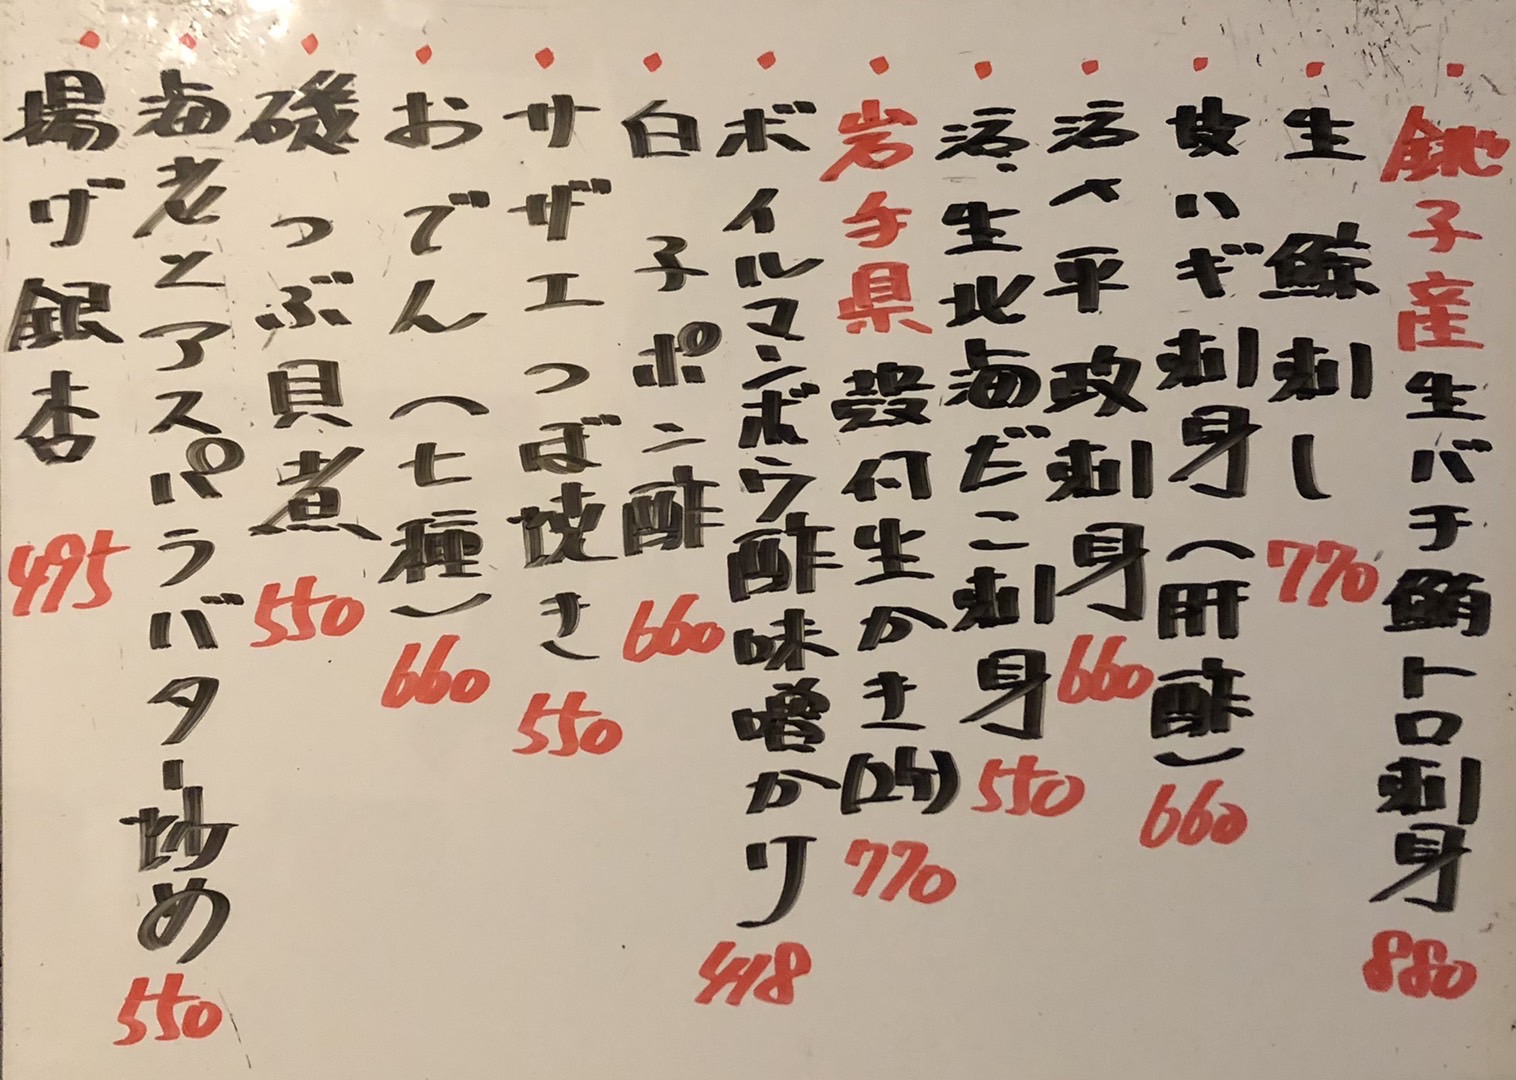 銚子産生バチ鮪トロ刺身 880
生鯨刺し 770
皮ハギ刺身(肝酢) 660
活〆平政刺身 660
活、生北海だこ刺身 550
岩手県殻付生かき(2ケ) 770
ボイルマンボウ酢味噌かけ 418
白子ポン酢 660
サザエつぼ焼き 550
おでん(七種) 660
磯つぶ貝煮 550
海老とアスパラバター炒め 550
揚げ銀杏 495